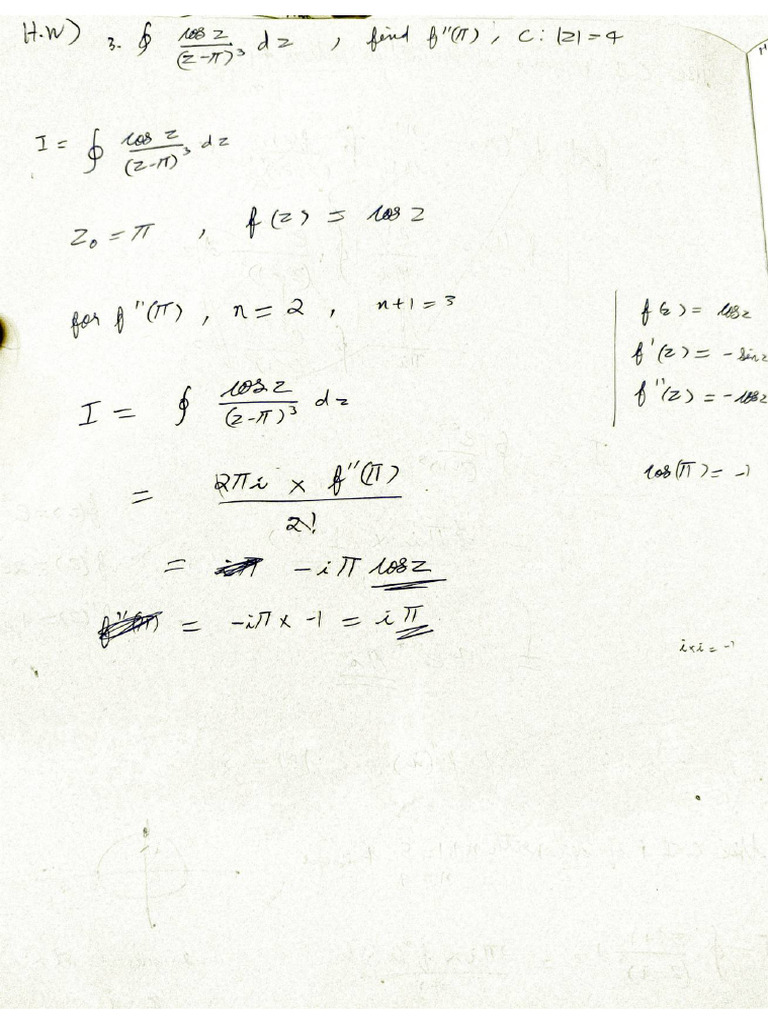 H.W) 3. ∮ cos z / (z-π)³ dz , find f''(π) , C : |z| = 4
I = ∮ cos z / (z-π)³ dz
z₀ = π , f(z) = cos z
for f''(π) , n = 2 , n+1 = 3
f(z) = cos z
f'(z) = - sin z
f''(z) = - cos z
I = ∮ cos z / (z-π)³ dz
cos(π) = -1
= 2πi × f''(π) / 2!
= - iπ cos z
= -iπ × -1 = iπ
i×i = -1